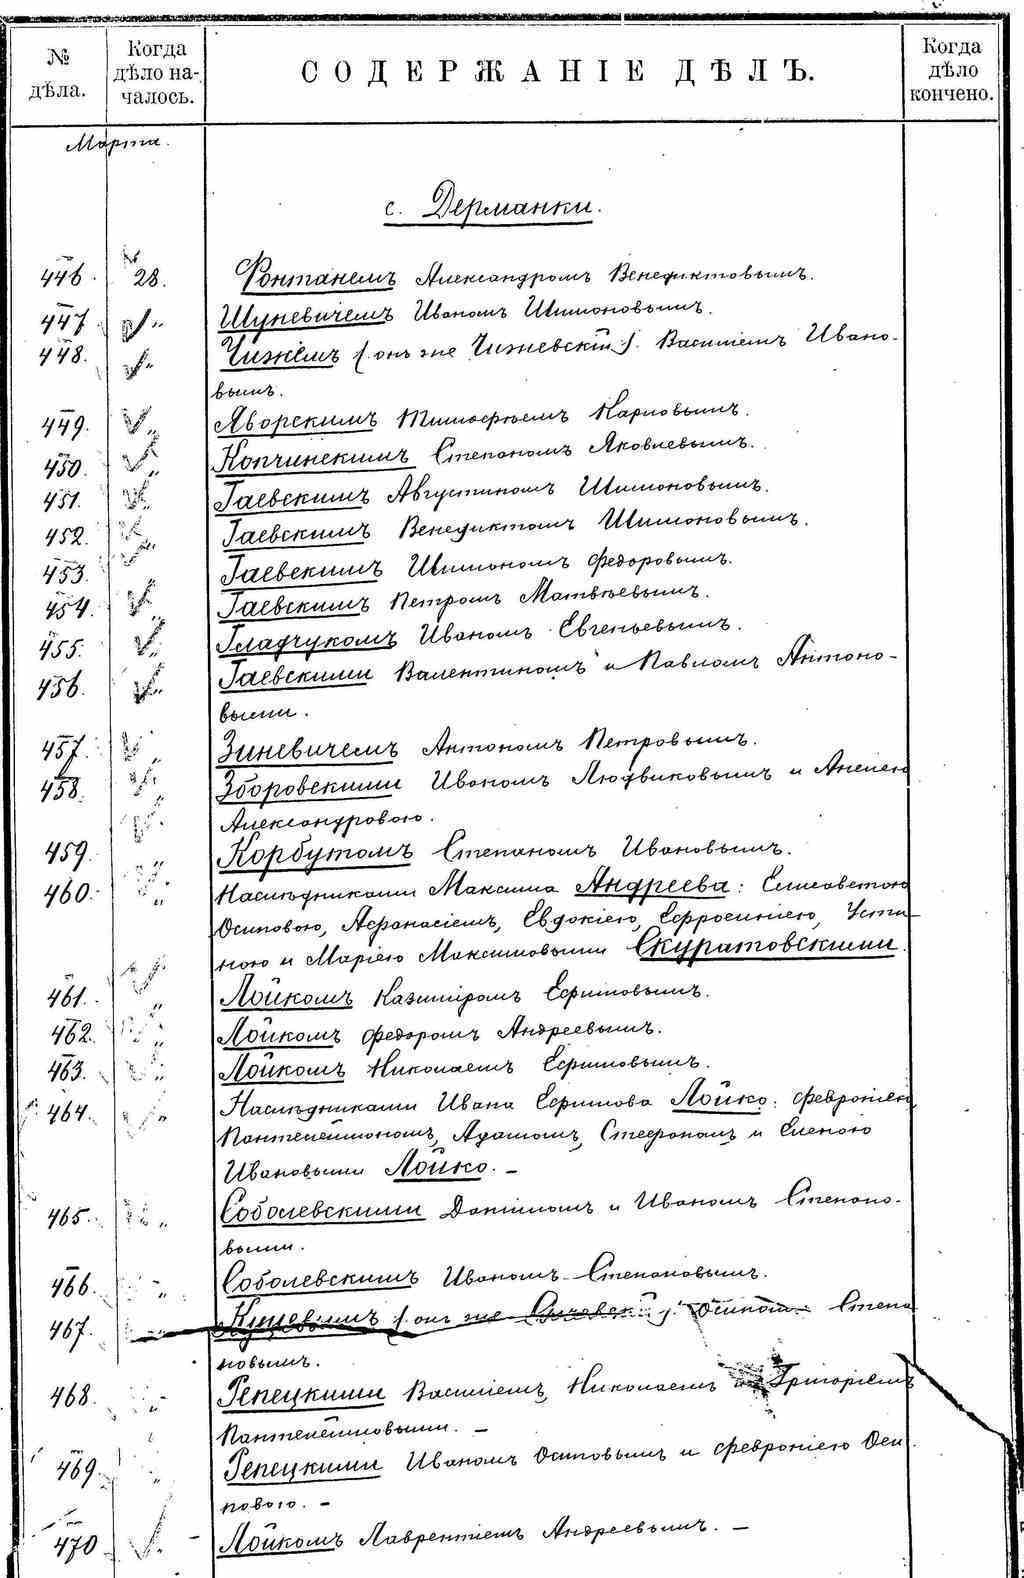 № дѣла.
Когда дѣло началось.
СОДЕРЖАНІЕ ДѢЛЪ.
Когда дѣло кончено.
Марта.
с. Дерманки.
446. 28. Фонтанемъ Александромъ Венедиктовымъ.
447. „ Шуневичемъ Иваномъ Шимоновымъ.
448. „ Чижемъ (онъ же Чижевскій). Василіемъ Ивано-
вымъ.
449. „ Яворскимъ Тимофѣемъ Карповымъ.
450. „ Копчинскимъ Степаномъ Яковлевымъ.
451. „ Гаевскимъ Августиномъ Шимоновымъ.
452. „ Гаевскимъ Венедиктомъ Шимоновымъ.
453. „ Гаевскимъ Шимономъ Федоровымъ.
454. „ Гаевскимъ Петромъ Матвѣевымъ.
455. „ Гладчукомъ Иваномъ Евгеньевымъ.
456. „ Гаевскими Валентиномъ и Павломъ Антоно-
выми.
457. „ Зиневичемъ Антономъ Петровымъ.
458. „ Зборовскими Иваномъ Людвиковымъ и Анелею
Александровою.
459. „ Корбутомъ Степаномъ Ивановымъ.
460. „ Наслѣдниками Максима Андреева: Елисаветою
Осиповою, Афанасіемъ, Евдокіею, Ефросиніею, Усти-
ною и Маріею Максимовыми Скуратовскими.
461. „ Лойкомъ Казиміромъ Ефимовымъ.
462. „ Лойкомъ Федоромъ Андреевымъ.
463. „ Лойкомъ Николаемъ Ефимовымъ.
464. „ Наслѣдниками Ивана Ефимова Лойко: Февроніею,
Пантелеймономъ, Адамомъ, Стефаномъ и Еленою
Ивановыми Лойко. –
465. „ Соболевскими Даніиломъ и Иваномъ Степано-
выми.
466. „ Соболевскимъ Иваномъ Степановымъ.
467. (онъ же Осипомъ Степа
новымъ.
468. „ Репецкими Василіемъ, Николаемъ и Григоріемъ
Пантелеймовыми. –
469. „ Репецкими Иваномъ Осиповымъ и Февроніею Оси
повою. –
470 „ Лойкомъ Лаврентіемъ Андреевымъ. –